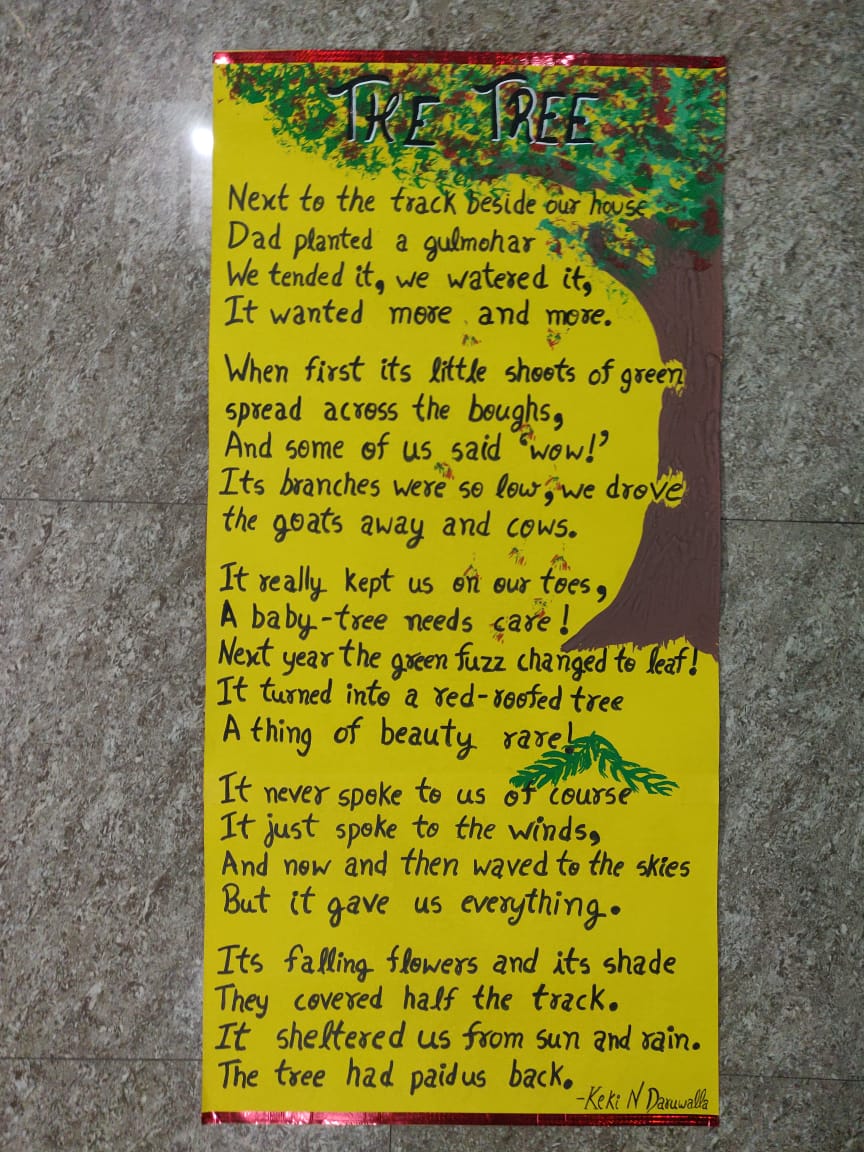 THE TREE
Next to the track beside our house
Dad planted a gulmohar
We tended it, we watered it,
It wanted more and more.
When first its little shoots of green
spread across the boughs,
And some of us said 'wow!'
Its branches were so low, we drove
the goats away and cows.
It really kept us on our toes,
A baby-tree needs care!
Next year the green fuzz changed to leaf!
It turned into a red-roofed tree
A thing of beauty rare!
It never spoke to us of course
It just spoke to the winds,
And now and then waved to the skies
But it gave us everything.
Its falling flowers and its shade
They covered half the track.
It sheltered us from sun and rain.
The tree had paid us back.
-Keki N Daruwalla